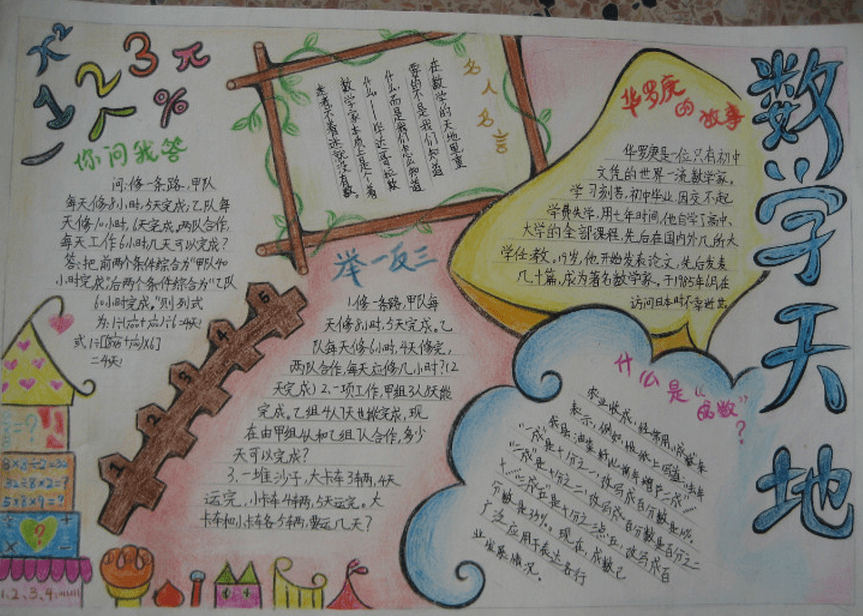 数学天地
x²
1 2 3 π
( ) %
你问我答
问:修一条路,甲队
每天修8小时,5天完成;乙队每
天修10小时,6天完成。两队合作,
每天工作6小时,几天可以完成?
答:把前两个条件综合为“甲队40
小时完成”,后两个条件综合为“乙队
60小时完成”。则列式
二4天!
名人名言
在数学的天地里重
要的不是我们知道
什么,而是我们怎么知道
什么——毕达哥拉斯
数学家本质上是个着
迷者,不着迷就没有数。
华罗庚的故事
华罗庚是一位只有初中
文凭的世界一流数学家。
学习刻苦,初中毕业,因交不起
学费失学,用七年时间,他自学了高中、
大学的全部课程。先后在国内外几所大
学任教。19岁,他开始发表论文,先后发表
几十篇,成为著名数学家。于1985年6月在
访问日本时不幸逝世。
举一反三
1.修一条路,甲队每
天修8小时,5天完成,乙
队每天修6小时,4天修完,
两队合作,每天应修几小时?(2
天完成)2、一项工作,甲组3人8天能
完成。乙组4人7天也能完成,现
在由甲组4人和乙组7人合作,多少
天可以完成?
3.一堆沙子,大卡车3车两,4天
运完,小卡车4车两,5天运完。大
卡车和小卡车各5车两,要运几天?
1 2 3 4 5
什么是“成数”?
农业收成,经常用“成数”来
表示。例如,报纸上写道:“去年
“一成”是十分之一,改写成百分数是10%。
分数是35%。现在,成数已
广泛应用于表达各行
业发展情况。
8×8÷2=32
32÷8×2=?
5×8×9=?
+ - ? × ÷
1、2、3、4、